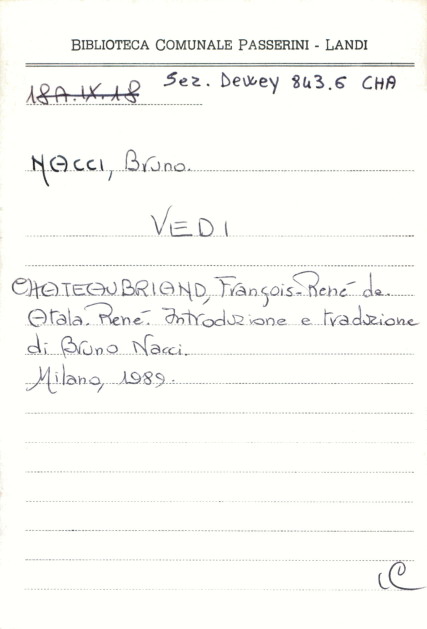 BIBLIOTECA COMUNALE PASSERINI - LANDI
18A.IX.18 Sez. Dewey 843.6 CHA
NACCI, Bruno.
VEDI
CHATEAUBRIAND, François-René de.
Atala. René. Introduzione e traduzione
di Bruno Nacci.
Milano, 1989.